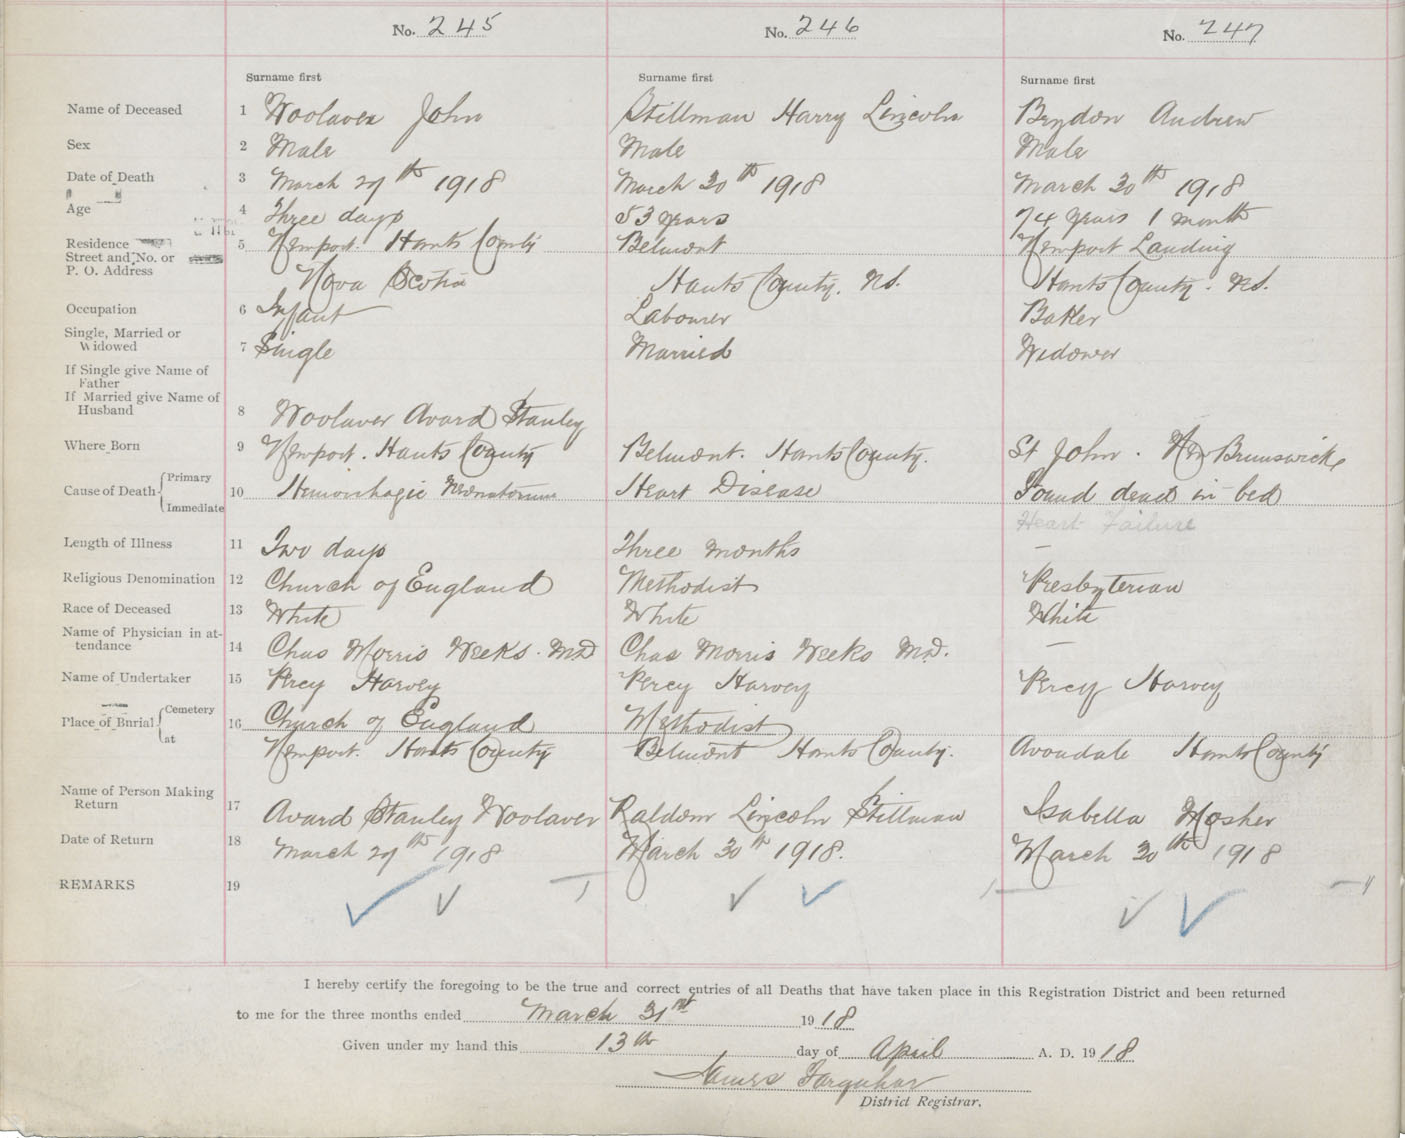 No. 245 No. 246 No. 247
Surname first Surname first Surname first
Name of Deceased 1 Woolaver John Stillman Harry Lincoln Brydon Andrew
Sex 2 Male Male Male
Date of Death 3 March 29th 1918 March 30th 1918 March 30th 1918
Age 4 Three days 53 years 74 years 1 month
Residence 5 Newport. Hants County Belmont Newport Landing
Street and No. or
P. O. Address Nova Scotia Hants County. N.S. Hants County. N.S.
Occupation 6 Infant Labourer Baker
Single, Married or
Widowed 7 Single Married Widower
If Single give Name of
Father
If Married give Name of
Husband 8 Woolaver Avard Stanley
Where Born 9 Newport. Hants County Belmont. Hants County. St John. New Brunswick
Cause of Death Primary
Immediate 10 Hemorrhagic Neonatorum Heart Disease Found dead in bed
Heart Failure
Length of Illness 11 Two days Three months —
Religious Denomination 12 Church of England Methodist Presbyterian
Race of Deceased 13 White White White
Name of Physician in at-
tendance 14 Chas Morris Weeks. M.D Chas Morris Weeks M.D. —
Name of Undertaker 15 Percy Harvey Percy Harvey Percy Harvey
Place of Burial Cemetery 16 Church of England Methodist
at Newport. Hants County Belmont Hants County. Avondale Hants County
Name of Person Making
Return 17 Avard Stanley Woolaver Raldom Lincoln Stillman Isabella Mosher
Date of Return 18 March 29th 1918 March 30th 1918. March 30th 1918
REMARKS 19
I hereby certify the foregoing to be the true and correct entries of all Deaths that have taken place in this Registration District and been returned
to me for the three months ended March 31st 1918
Given under my hand this 13th day of April A. D. 1918
James Farquhar
District Registrar.